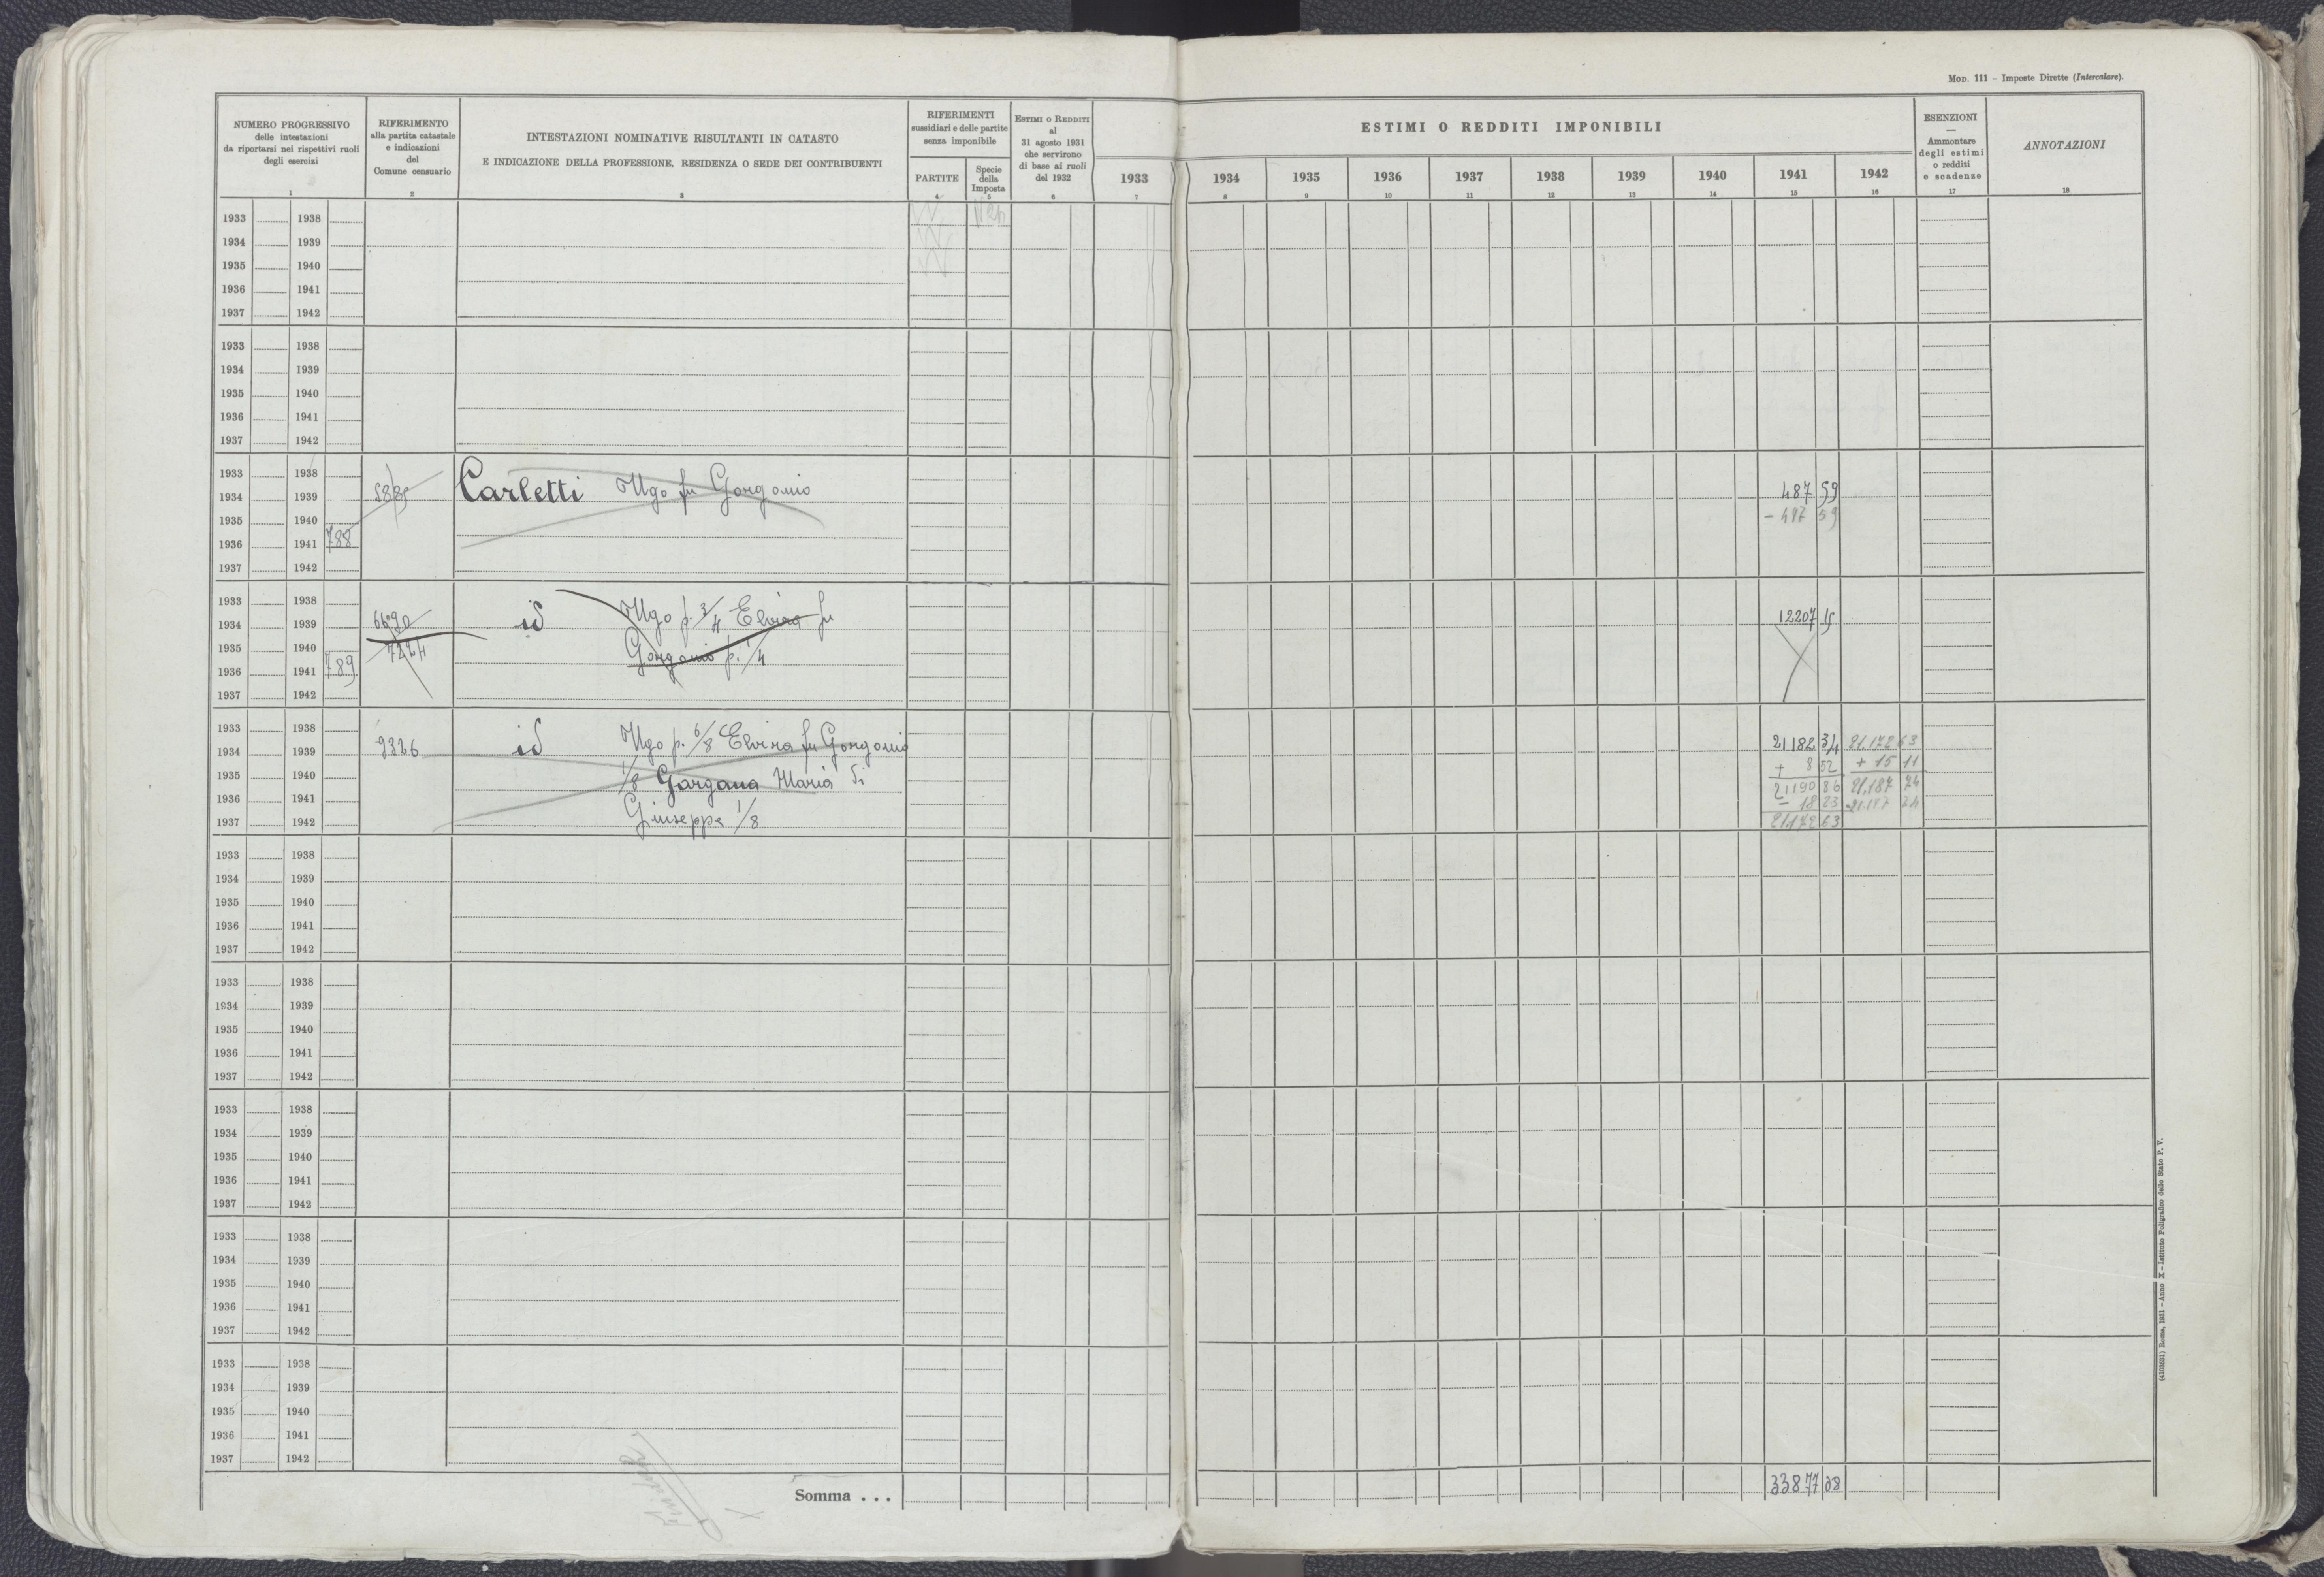 MOD. 111 – Imposte Dirette (Intercalare).
NUMERO PROGRESSIVO
delle intestazioni
da riportarsi nei rispettivi ruoli
degli esercizi
1
RIFERIMENTO
alla partita catastale
e indicazioni
del
Comune censuario
2
INTESTAZIONI NOMINATIVE RISULTANTI IN CATASTO
E INDICAZIONE DELLA PROFESSIONE, RESIDENZA O SEDE DEI CONTRIBUENTI
3
RIFERIMENTI
sussidiari e delle partite
senza imponibile
PARTITE
4
Specie
della
Imposta
5
ESTIMI O REDDITI
al
31 agosto 1931
che servirono
di base ai ruoli
del 1932
6
ESTIMI O REDDITI IMPONIBILI
1933 1934 1935 1936 1937 1938 1939 1940 1941 1942
7 8 9 10 11 12 13 14 15 16
ESENZIONI
—
Ammontare
degli estimi
o redditi
e scadenze
17
ANNOTAZIONI
18
1933 1938
1934 1939
1935 1940
1936 1941
1937 1942
1933 1938
1934 1939
1935 1940
1936 1941
1937 1942
1933 1938
1934 1939 5885 Carletti Ugo fu Gorgonio 487 59
1935 1940 – 487 59
1936 1941 788
1937 1942
1933 1938
1934 1939 6690 id Ugo p. 3/4 Elvira fu 12207 15
1935 1940 7224 Gorgonio p. 1/4
1936 1941 789
1937 1942
1933 1938
1934 1939 9326 id Ugo p. 6/8 Elvira fu Gorgonio 21182 34 21.172 63
1935 1940 1/8 Gargana Maria di + 8 52 + 15 11
1936 1941 21190 86 21,187 74
1937 1942 Giuseppe 1/8 – 18 23 –21.187 74
21.172 63
1933 1938
1934 1939
1935 1940
1936 1941
1937 1942
1933 1938
1934 1939
1935 1940
1936 1941
1937 1942
1933 1938
1934 1939
1935 1940
1936 1941
1937 1942
1933 1938
1934 1939
1935 1940
1936 1941
1937 1942
1933 1938
1934 1939
1935 1940
1936 1941
1937 1942
Somma . . . 33877 08
(4103531) Roma, 1931 – Anno X – Istituto Poligrafico dello Stato P. V.